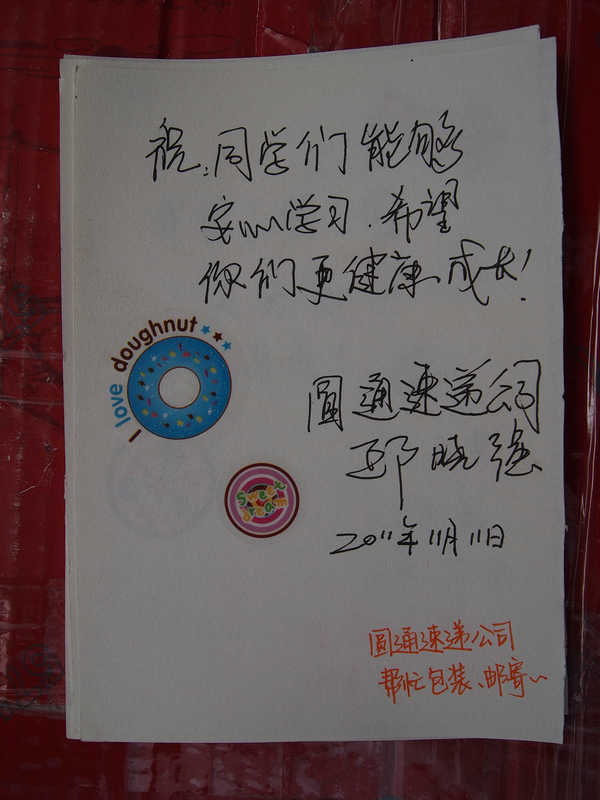 祝:同学们能够
安心学习.希望
你们更健康成长!
I love doughnut
圆通速递公司
邱晓强
Sweet
dream
2011年11月11日
圆通速递公司
帮忙包装、邮寄~